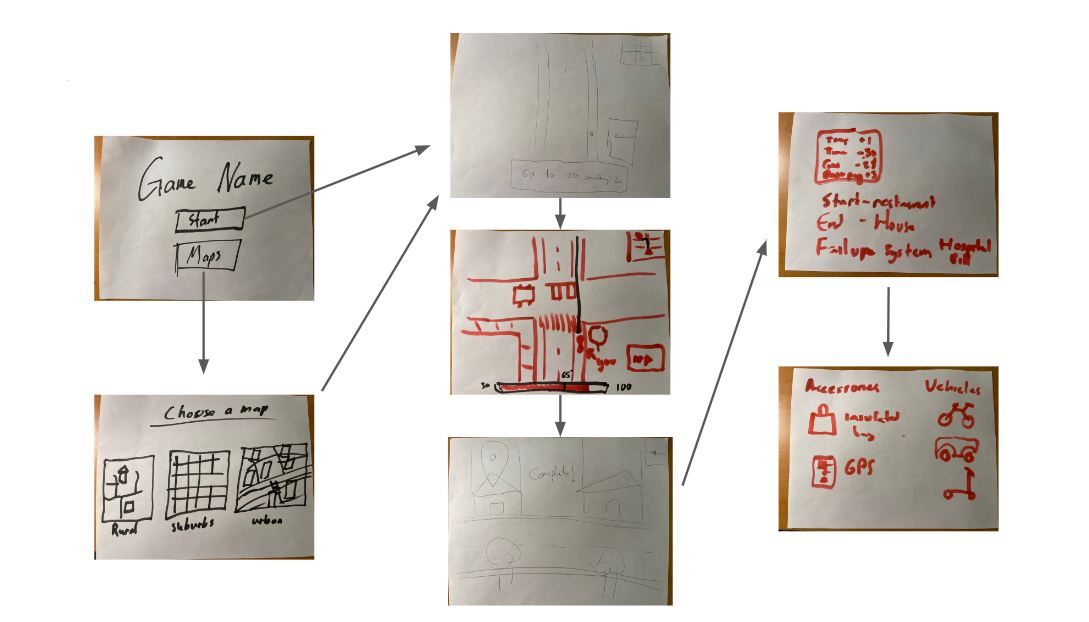 Game Name
Start
Maps
Choose a map
Rural
Suburbs
urban
Go to 1234 something
you
30
65
100
Complete!
Time -30
Start-restaurant
End - House
Failure System Hospital
Bill
Accessories
Vehicles
insulated
GPS